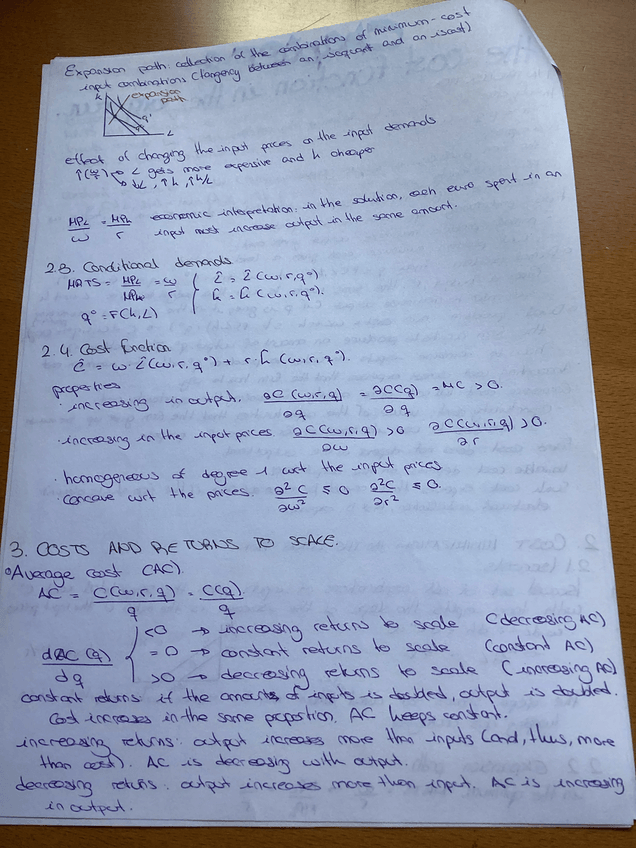 Expansion path: collection of the combinations of minimum-cost
input combinations (tangency between an isoquant and an isocost)
k
expansion
path
q°
L
effect of changing the input prices on the input demands
↑(w/r) → L gets more expensive and k cheaper
→ ↓L, ↑k, ↑k/L
MPL/w = MPk/r economic interpretation: in the solution, each euro spent in an
input must increase output in the same amount.
2.3. Conditional demands
MRTS = MPL/MPk = w/r { L̂ = L̂ (w, r, q°)
q° = F(k, L) k̂ = k̂ (w, r, q°).
2.4. Cost function
Ĉ = w · L̂(w, r, q°) + r · k̂ (w, r, q°).
properties
· increasing in output. ∂C (w, r, q)/∂q = ∂C(q)/∂q = MC > 0.
· increasing in the input prices. ∂C(w, r, q)/∂w > 0 ∂C(w, r, q)/∂r > 0.
· homogeneous of degree 1 wrt the input prices
· concave wrt the prices. ∂²C/∂w² ≤ 0 ∂²C/∂r² ≤ 0.
3. COSTS AND RETURNS TO SCALE.
° Average cost (AC)
AC = C(w, r, q)/q = C(q)/q
dAC (q)/dq { <0 → increasing returns to scale (decreasing AC)
= 0 → constant returns to scale (constant AC)
>0 → decreasing returns to scale (increasing AC)
constant returns: if the amounts of inputs is doubled, output is doubled.
Cost increases in the same proportion. AC keeps constant.
increasing returns: output increases more than inputs (and, thus, more
than cost). AC is decreasing with output.
decreasing returns: output increases more than input. AC is increasing
in output.